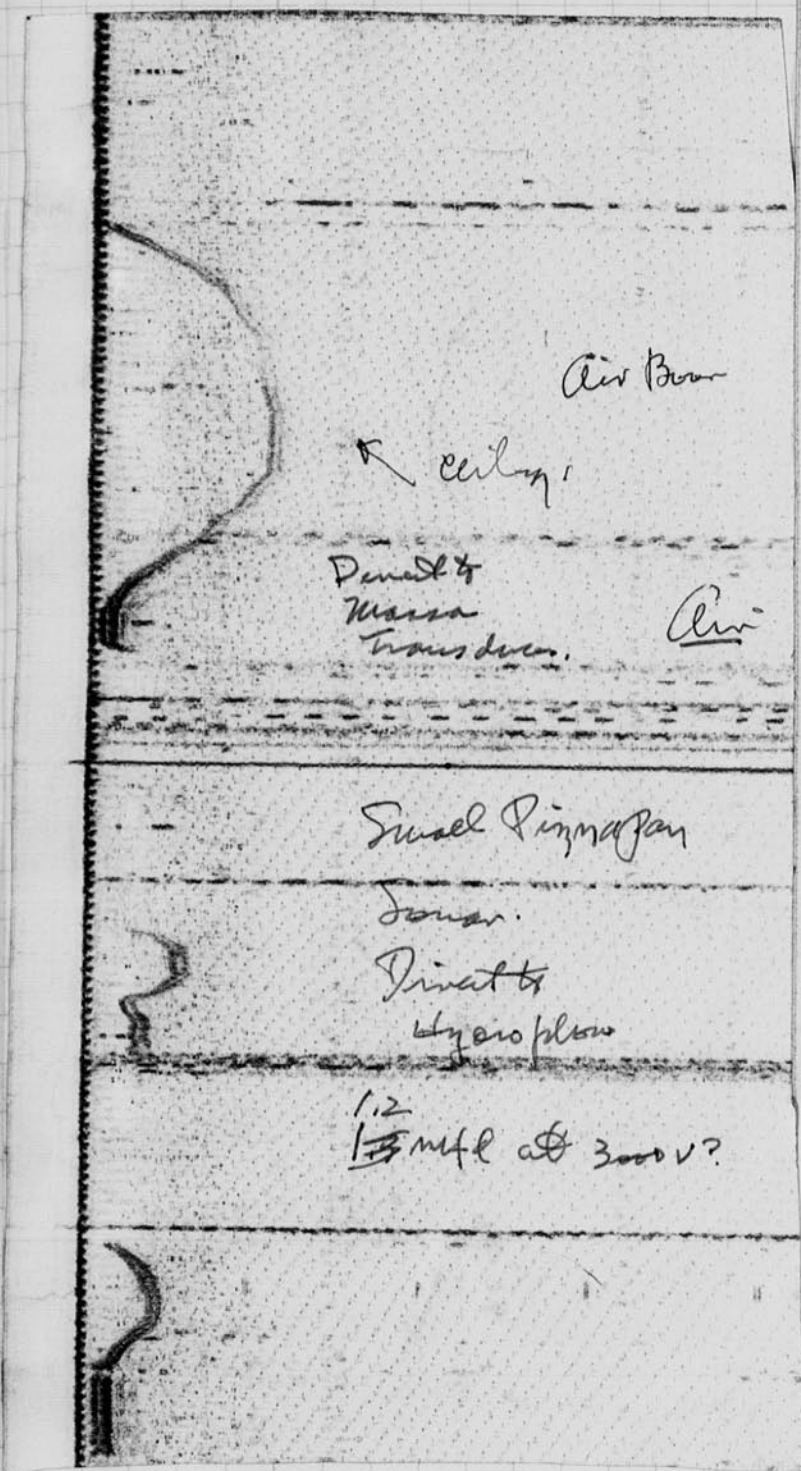 Air Boom
ceiling
Direct to
Massa
Transducer.
Air
Small
Sonar.
Direct to
Hydrophone
1.2
mfd at 3000 V?